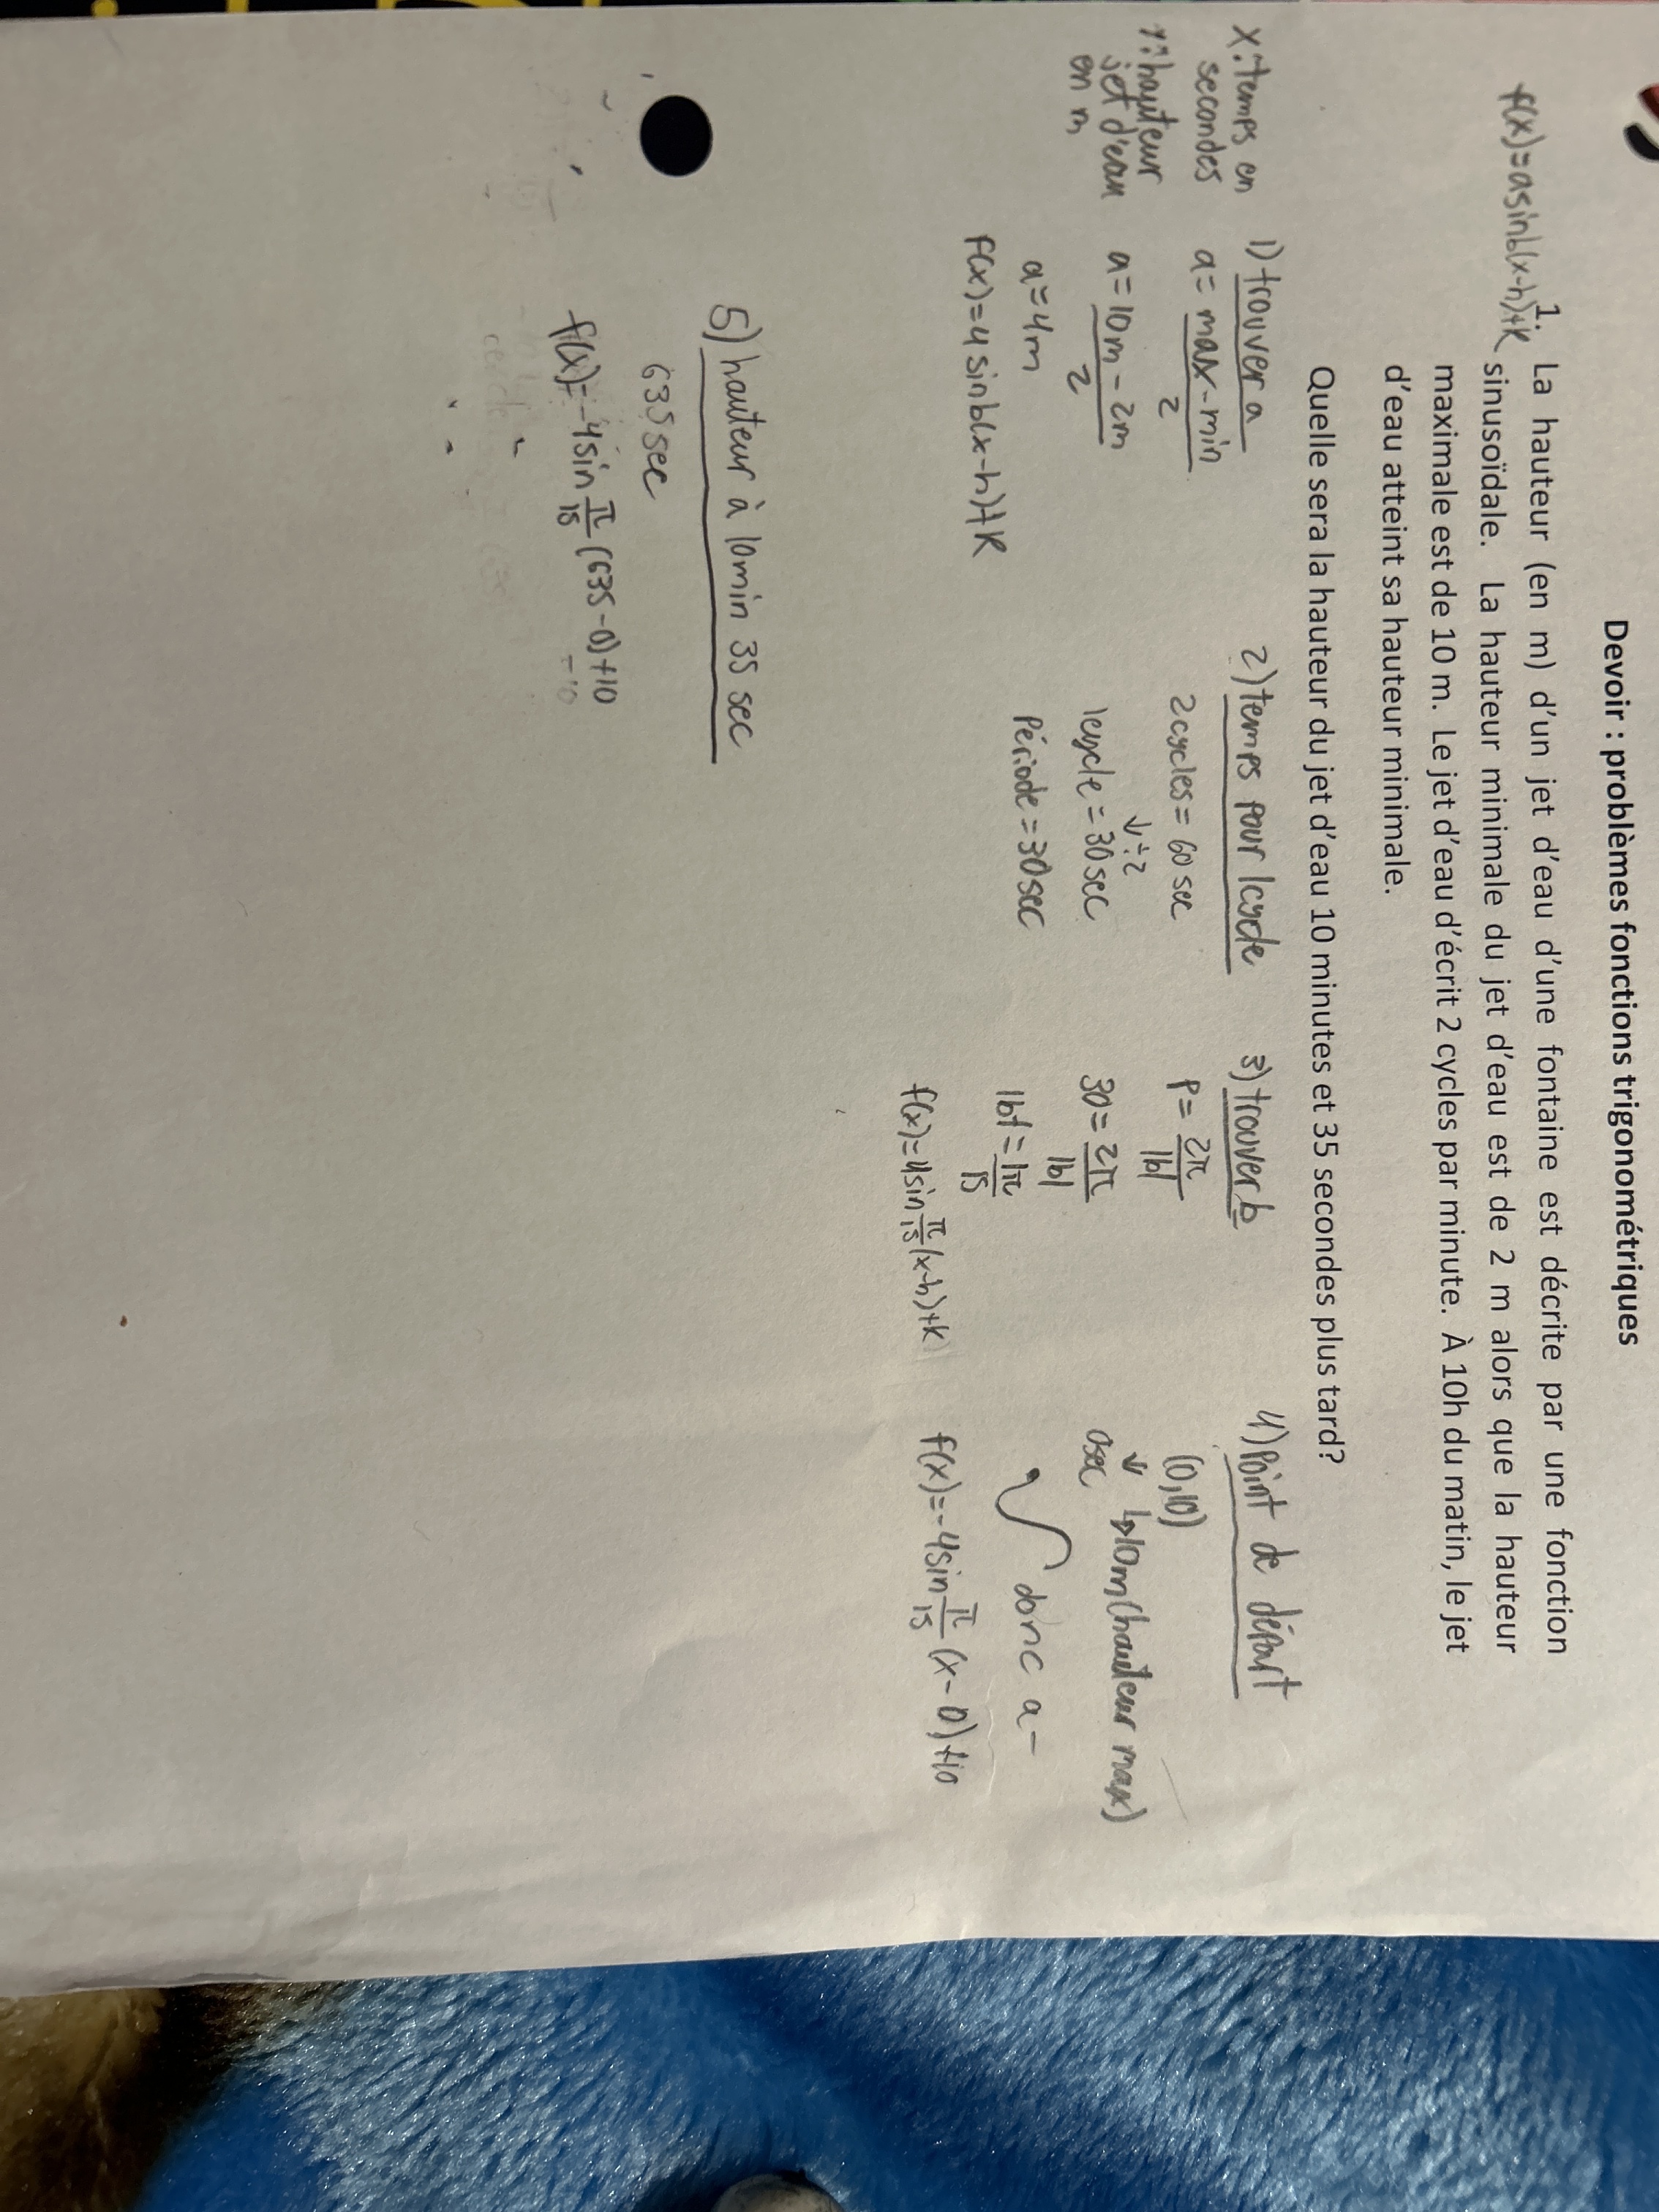 Devoir : problèmes fonctions trigonométriques
f(x)=asinb(x-h)+k
1. La hauteur (en m) d'un jet d'eau d'une fontaine est décrite par une fonction
sinusoïdale. La hauteur minimale du jet d'eau est de 2 m alors que la hauteur
maximale est de 10 m. Le jet d'eau d'écrit 2 cycles par minute. À 10h du matin, le jet
d'eau atteint sa hauteur minimale.
Quelle sera la hauteur du jet d'eau 10 minutes et 35 secondes plus tard?
x: temps en
secondes
y: hauteur
jet d'eau
en m
1) trouver a
a= max-min
2
a= 10m-2m
2
a=4m
f(x)=4sinb(x-h)+k
2) temps pour 1 cycle
2cycles=60 sec
↓÷2
1cycle=30sec
Période=30sec
3) trouver b
P= 2π
|b|
30= 2π
|b|
|b|= 1π
15
f(x)=4sin π/15 (x-h)+k
4) Point de départ
(0,10)
↓ ↳10m(hauteur max)
0sec
donc a -
f(x)=-4sin π/15 (x-0)+10
5) hauteur à 10min 35 sec
635sec
f(x)=-4sin π/15 (635-0)+10
-10